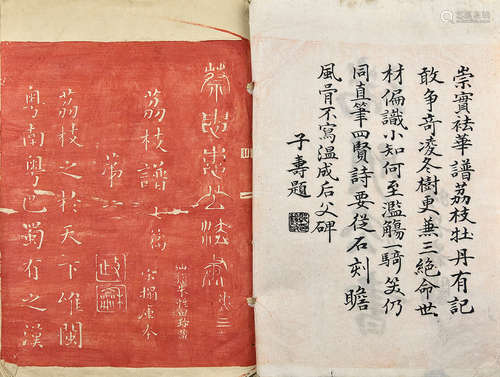 崇實祛華譜荔枝牡丹有記
敢争奇凌冬樹更兼三絶命世
材偏識小知何至濫觴一騎笑仍
同直筆四賢詩要從石刻瞻
風骨不寫温成后父碑
子壽題
蔡忠惠書法
荔枝譜七篇
宋搨本
第一
荔枝之於天下唯閩
粤南粤巴蜀有之漢